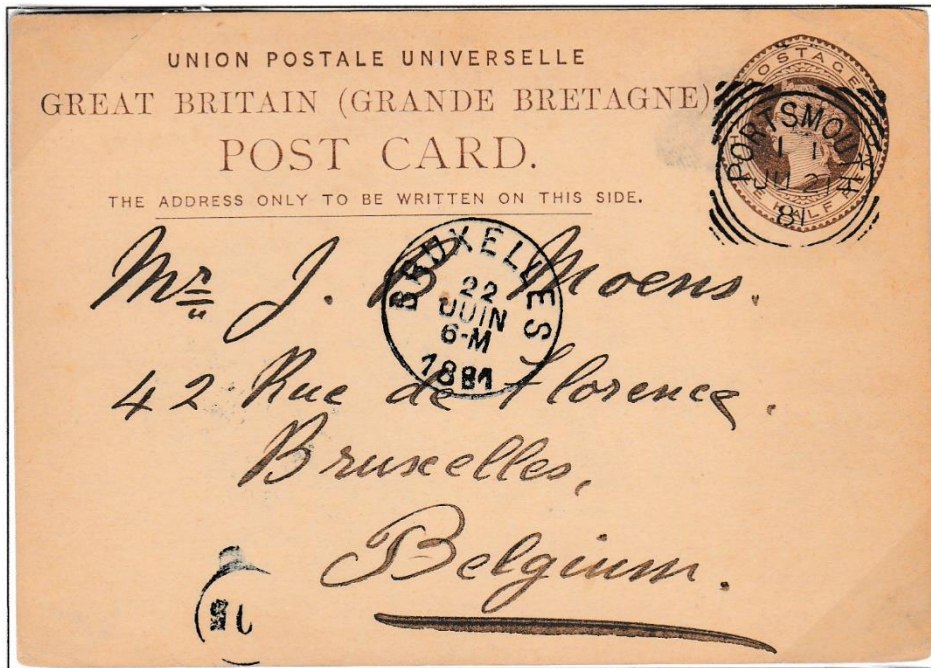 UNION POSTALE UNIVERSELLE
GREAT BRITAIN (GRANDE BRETAGNE)
POST CARD.
THE ADDRESS ONLY TO BE WRITTEN ON THIS SIDE.
POSTAGE
HALF
PORTSMOUTH
81
BRUXELLES
22
JUIN
6-M
1881
Mr J. B. Moens.
42 Rue de Florence.
Bruxelles,
Belgium.